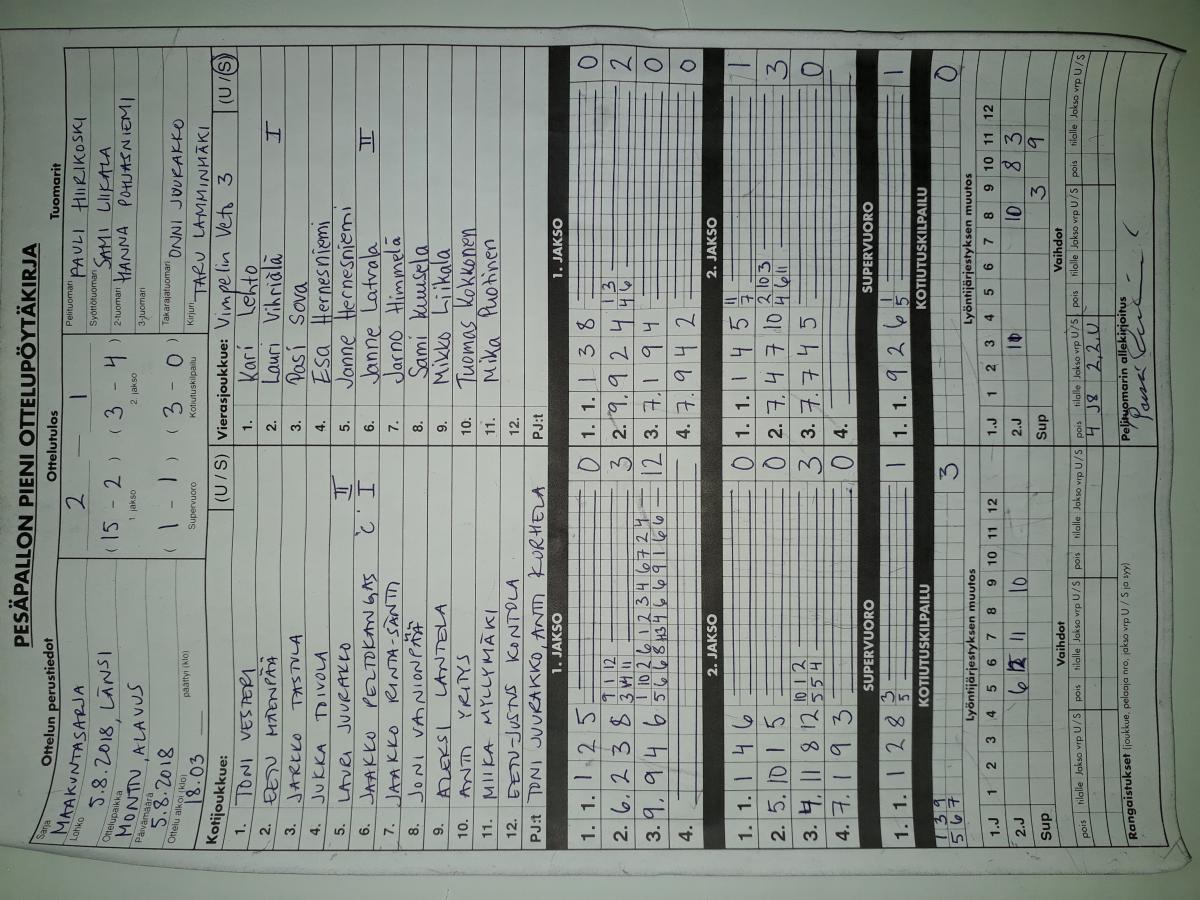 PESÄPALLON PIENI OTTELUPÖYTÄKIRJA
Ottelun perustiedot
Sarja
MAAKUNTASARJA
Lohko
5.8.2018, LÄNSI
Ottelupaikka
MONTTU, ALAVUS
Päivämäärä
5.8.2018
Ottelu alkoi (klo)
18.03
päättyi (klo)
Ottelutulos
2 — 1
( 15 - 2 ) ( 3 - 4 )
1 jakso 2 jakso
( 1 - 1 ) ( 3 - 0 )
Supervuoro Kotiutuskilpailu
Tuomarit
Pelituomari PAULI HIIRIKOSKI
Syöttötuomari SAMI LIIKALA
2-tuomari HANNA POHJASNIEMI
3-tuomari
Takarajatuomari ONNI JUURAKKO
Kirjuri TARU LAMMINMÄKI
Kotijoukkue: (U / S)
1. TONI VESTERI
2. EETU MÄENPÄÄ
3. JARKKO TASTULA
4. JUKKA TOIVOLA
5. LAURI JUURAKKO II
6. JAAKKO PELTOKANGAS C I
7. JAAKKO RINTA-SÄNTTI
8. JONI VAINIONPÄÄ
9. ALEKSI LANTELA
10. ANTTI YRITYS
11. MIIKA MYLLYMÄKI
12. EETU-JUSTUS KONTOLA
PJ:t TONI JUURAKKO, ANTTI KORHELA
Vierasjoukkue: Vimpelin Veto 3 (U / S)
1. Kari Lehto
2. Lauri Vihriälä I
3. Pasi Sova
4. Esa Hernesniemi
5. Janne Hernesniemi
6. Janne Latvala II
7. Jarno Himmelä
8. Sami Kuusela
9. Mikko Liikala
10. Tuomas Kokkonen
11. Mika Puotinen
12.
PJ:t
1. JAKSO
1. 1. 1 2 5 0
2. 6. 2 3 8 3
9 1 12
3 4 11
3. 9. 9 4 6 12
1 10 12 6 1 2 3 4 6 7 2 4
4.
1. JAKSO
1. 1. 1 3 8 0
2. 9. 9 2 4 2
1 3
4 6
3. 7. 1 9 4 0
4. 7. 9 4 2 0
2. JAKSO
1. 1. 1 4 6 0
2. 5. 10 1 5 0
3. 4. 11 8 12 3
10 1 2
5 5 4
4. 7. 1 9 3 0
2. JAKSO
1. 1. 1 4 5 1
11
7
2. 7. 4 7 10 3
2 10 3
4 6 11
3. 7. 7 4 5 0
4.
SUPERVUORO
1. 1. 1 2 8 1
3
5
SUPERVUORO
1. 1. 9 2 6 1
1
5
KOTIUTUSKILPAILU
1 3 9
5 6 7
3
KOTIUTUSKILPAILU
0
Lyöntijärjestyksen muutos
1 2 3 4 5 6 7 8 9 10 11 12
1.J
2.J 6 11 10
Sup
Lyöntijärjestyksen muutos
1 2 3 4 5 6 7 8 9 10 11 12
1.J
2.J 10 8 3
Sup 3 9
Vaihdot
pois tilalle Jakso vrp U / S pois tilalle Jakso vrp U / S pois tilalle Jakso vrp U / S
Vaihdot
pois tilalle Jakso vrp U / S pois tilalle Jakso vrp U / S pois tilalle Jakso vrp U / S
4 J8 2.2.U
Rangaistukset (joukkue, pelaaja nro, jakso vrp U / S ja syy)
Pelituomarin allekirjoitus